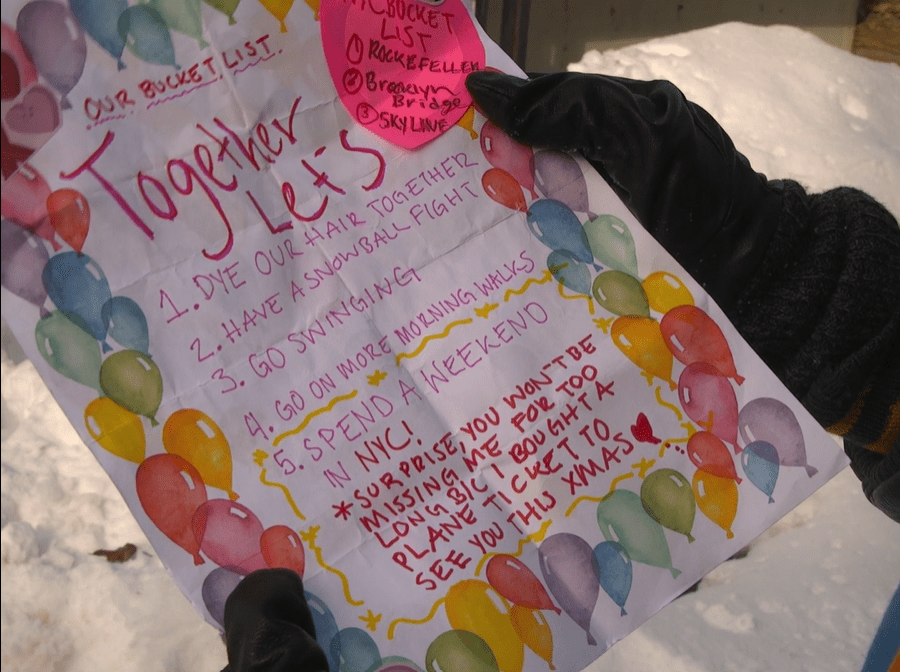 OUR BUCKET LIST
Together
Let's
1. DYE OUR HAIR TOGETHER
2. HAVE A SNOWBALL FIGHT
3. GO SWINGING
4. GO ON MORE MORNING WALKS
5. SPEND A WEEKEND
IN NYC!
*SURPRISE, YOU WON'T BE
MISSING ME FOR TOO
LONG B/C I BOUGHT A
PLANE TICKET TO
SEE YOU THIS XMAS
NYC BUCKET
LIST
① ROCKEFELLER
② Brooklyn
Bridge
③ SKYLINE